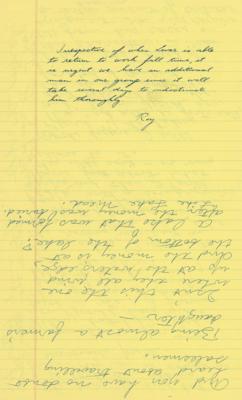 Irrespective of when is able
to return to work full time, it
is urgent we have an additional
man in our group since it will
take several days to indoctrinate
him thoroughly
Roy
And you have no doubt
heard about travelling
salesmen.
Being almost a farmer's
daughter —
Isn't this the one
when they all wind
up at the waters edge,
And the money is at
the bottom of the lake?
A lake that was formed
after the money was buried.
Like Lake Mead.